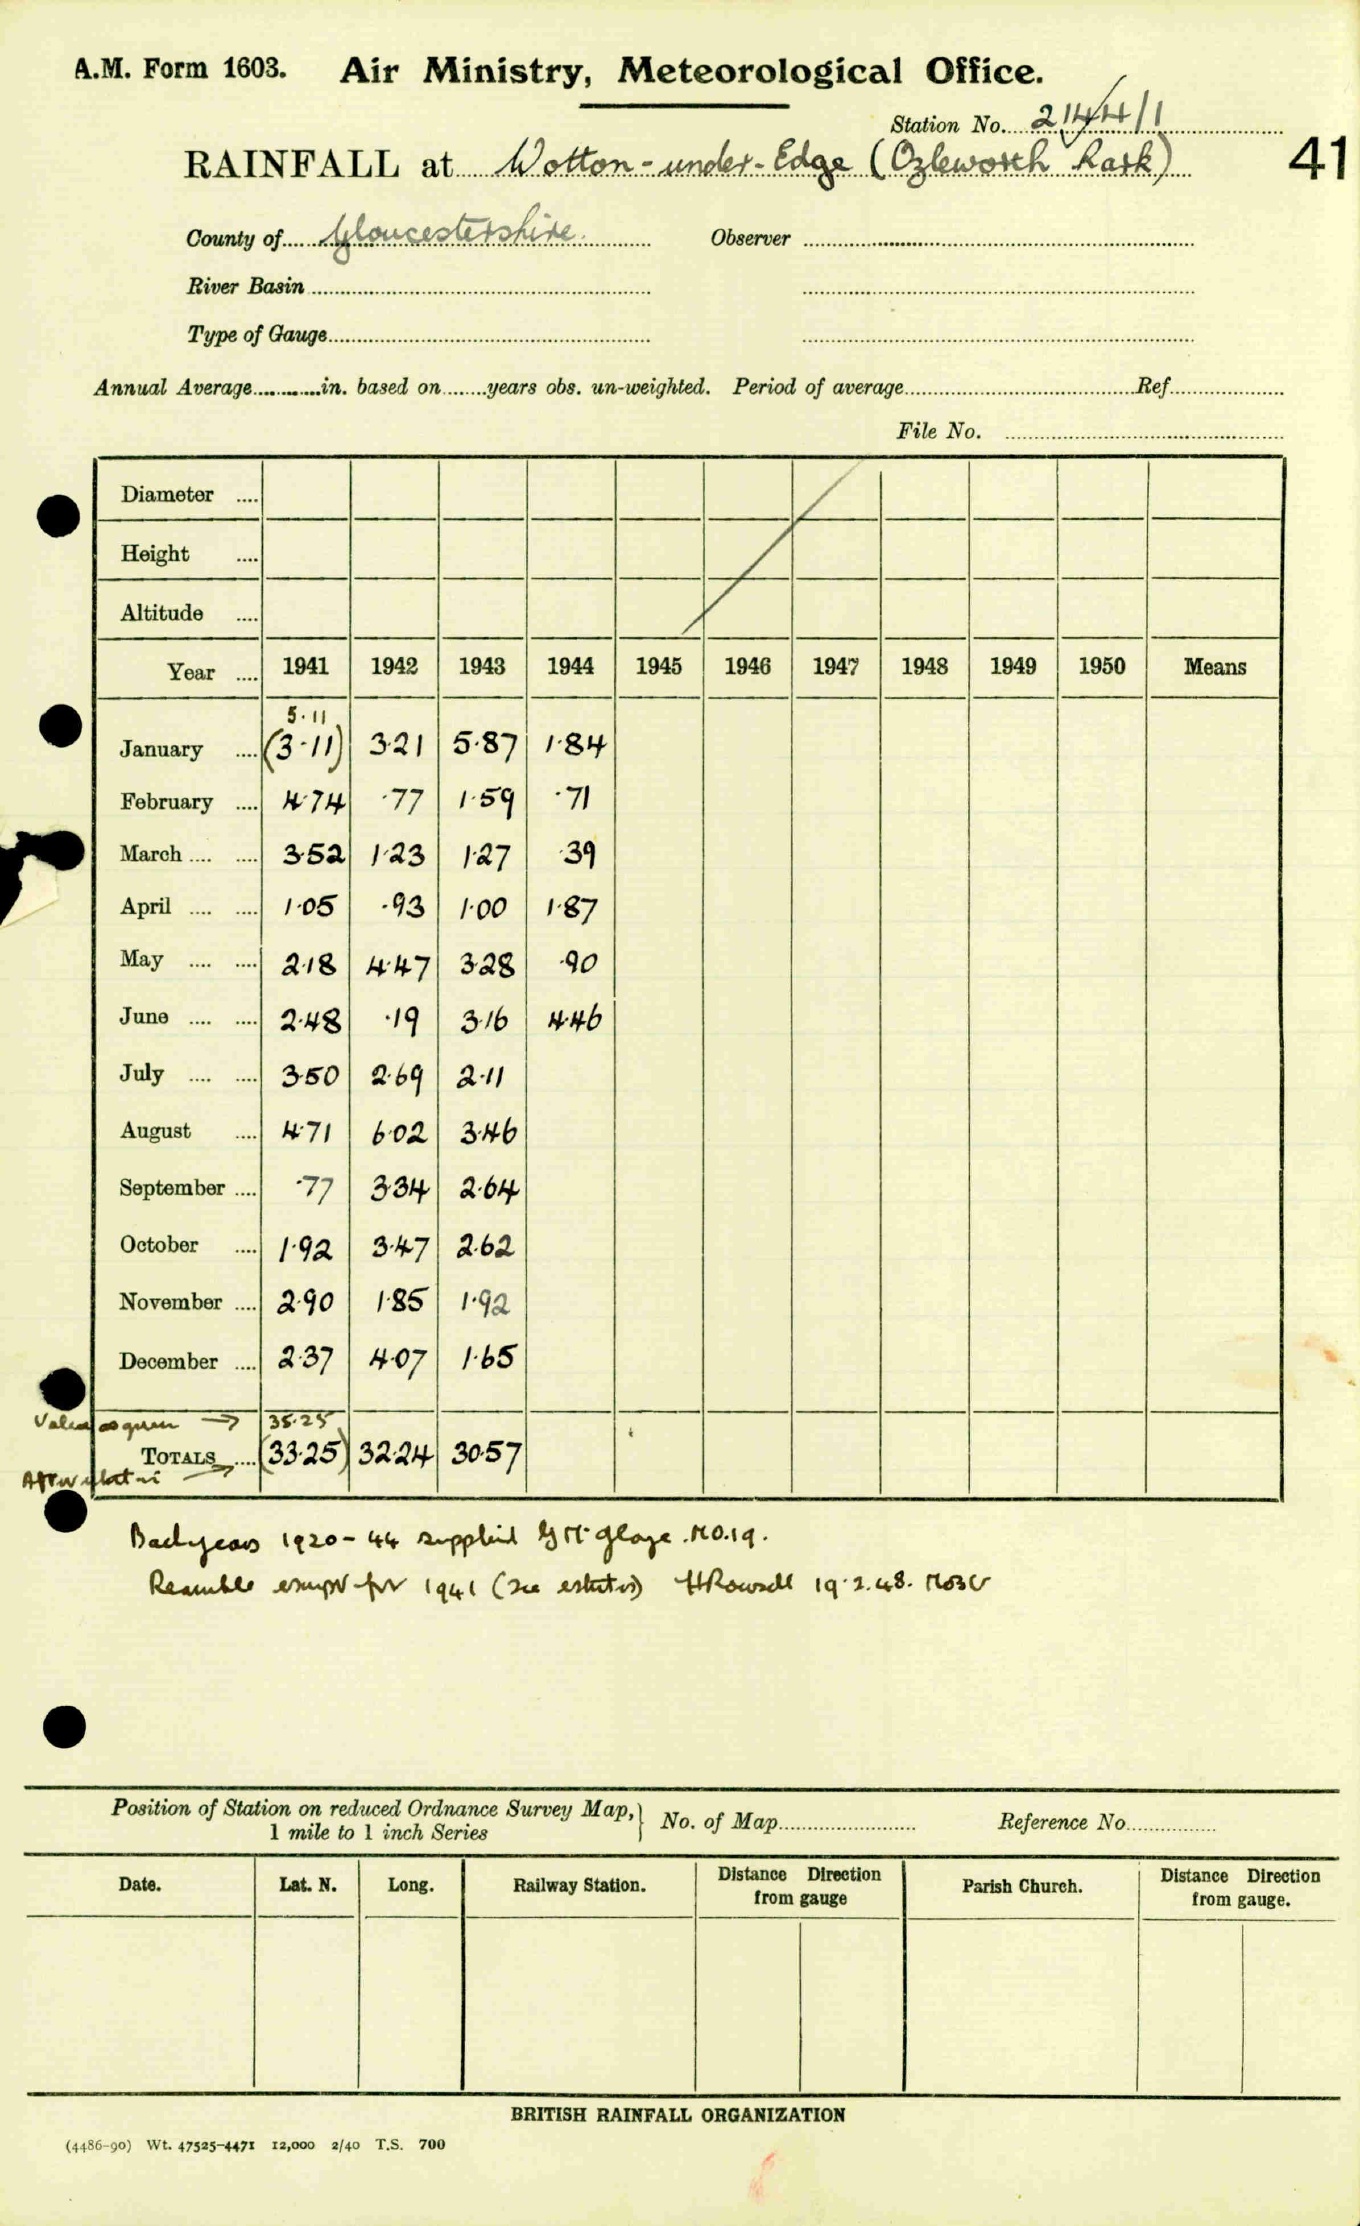 A.M. Form 1603. Air Ministry, Meteorological Office.
Station No. 2144/1
RAINFALL at Wotton-under-Edge (Ozleworth Park)
41
County of Gloucestershire. Observer
River Basin
Type of Gauge
Annual Average in. based on years obs. un-weighted. Period of average Ref
File No.
Diameter
Height
Altitude
Year 1941 1942 1943 1944 1945 1946 1947 1948 1949 1950 Means
5.11
January (3.11) 3.21 5.87 1.84
February 4.74 .77 1.59 .71
March 3.52 1.23 1.27 .39
April 1.05 .93 1.00 1.87
May 2.18 4.47 3.28 .90
June 2.48 .19 3.16 4.46
July 3.50 2.69 2.11
August 4.71 6.02 3.46
September .77 3.34 2.64
October 1.92 3.47 2.62
November 2.90 1.85 1.92
December 2.37 4.07 1.65
as given → 35.25
TOTALS (33.25) 32.24 30.57
Back years 1920-44 supplied M.O.19.
1941 (see 19.2.48.
Position of Station on reduced Ordnance Survey Map, } No. of Map Reference No.
1 mile to 1 inch Series
Date. Lat. N. Long. Railway Station. Distance Direction from gauge Parish Church. Distance Direction from gauge.
BRITISH RAINFALL ORGANIZATION
(4486-90) Wt. 47525-4471 12,000 2/40 T.S. 700